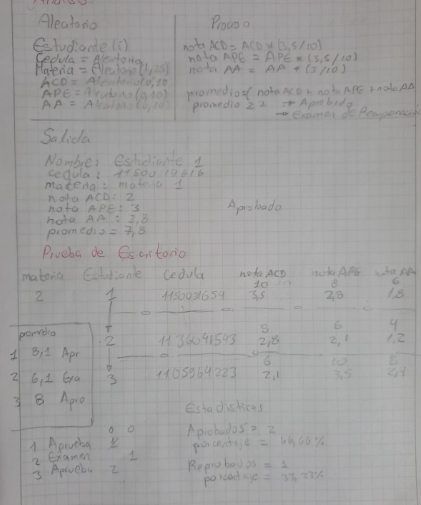 Analisis
Aleatorio
Estudiante (i)
Cedula = Aleatorio
Materia = Aleatorio(1,20)
ACD = Aleatorio(0,10
APE = Aleatorio(0,10)
AA = Aleatorio(0,10)
Proceso
nota ACD = ACD * (3,5/10)
nota APE = APE * (3,5/10)
nota AA = AA * (3/10)
promedio = (nota ACD + nota APE + nota AA
promedio ≥ 7 → Aprobado
→ Examen de Recuperación
Salida
Nombre: Estudiante 1
cedula:
materia: materia 1
nota ACD: 2
nota APE: 3
nota AA: 2,8
promedio = 7,8
Aprobado
Prueba de Escritorio
materia Estudiante Cedula nota ACD nota APE nota AA
10 8 6
2 1 3,5 2,8 1,8
5 6 4
2 1136041543 2,1 1,2
6 10 8
3 1105964223 2,1 3,5 2,4
promedio
1 8,1 Apr
2 6,1 Exa
3 8 Apro
Estadisticas
1 Aprueba 1
2 Examen 1
3 Aprueba 2
Aprobados = 2
porcentaje = 66,66%
Reprobados = 1
porcentaje = 33,33%